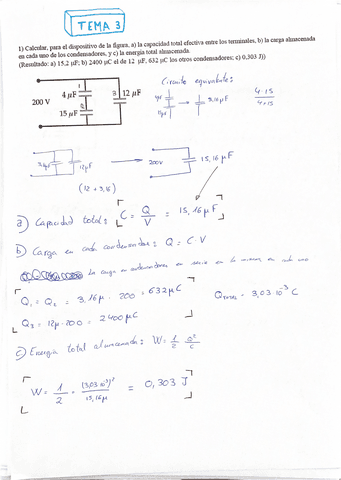 TEMA 3
1) Calcular, para el dispositivo de la figura, a) la capacidad total efectiva entre los terminales, b) la carga almacenada
en cada uno de los condensadores, y c) la energía total almacenada.
(Resultado: a) 15,2 μF; b) 2400 μC el de 12 μF, 632 μC los otros condensadores; c) 0,303 J)
Circuito equivalente:
1
4 μF
3 12 μF
200 V
15 μF
4μF
15μF
3,16μF
4·15
4+15
12μF
200V
15,16μF
(12 + 3,16)
a) Capacidad total: C = Q/V = 15,16μF
b) Carga en cada condensador: Q = C·V
La carga en condensadores en serie es la misma en cada uno
Q1 = Q2 = 3,16μ · 200 = 632μC
QTOTAL = 3,03·10⁻³ C
Q3 = 12μ·200 = 2400μC
c) Energía total almacenada: W = 1/2 Q²/C
W = 1/2 · (3,03·10⁻³)²/15,16μ = 0,303 J